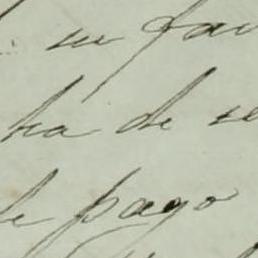 su fav
ha de se
de pago